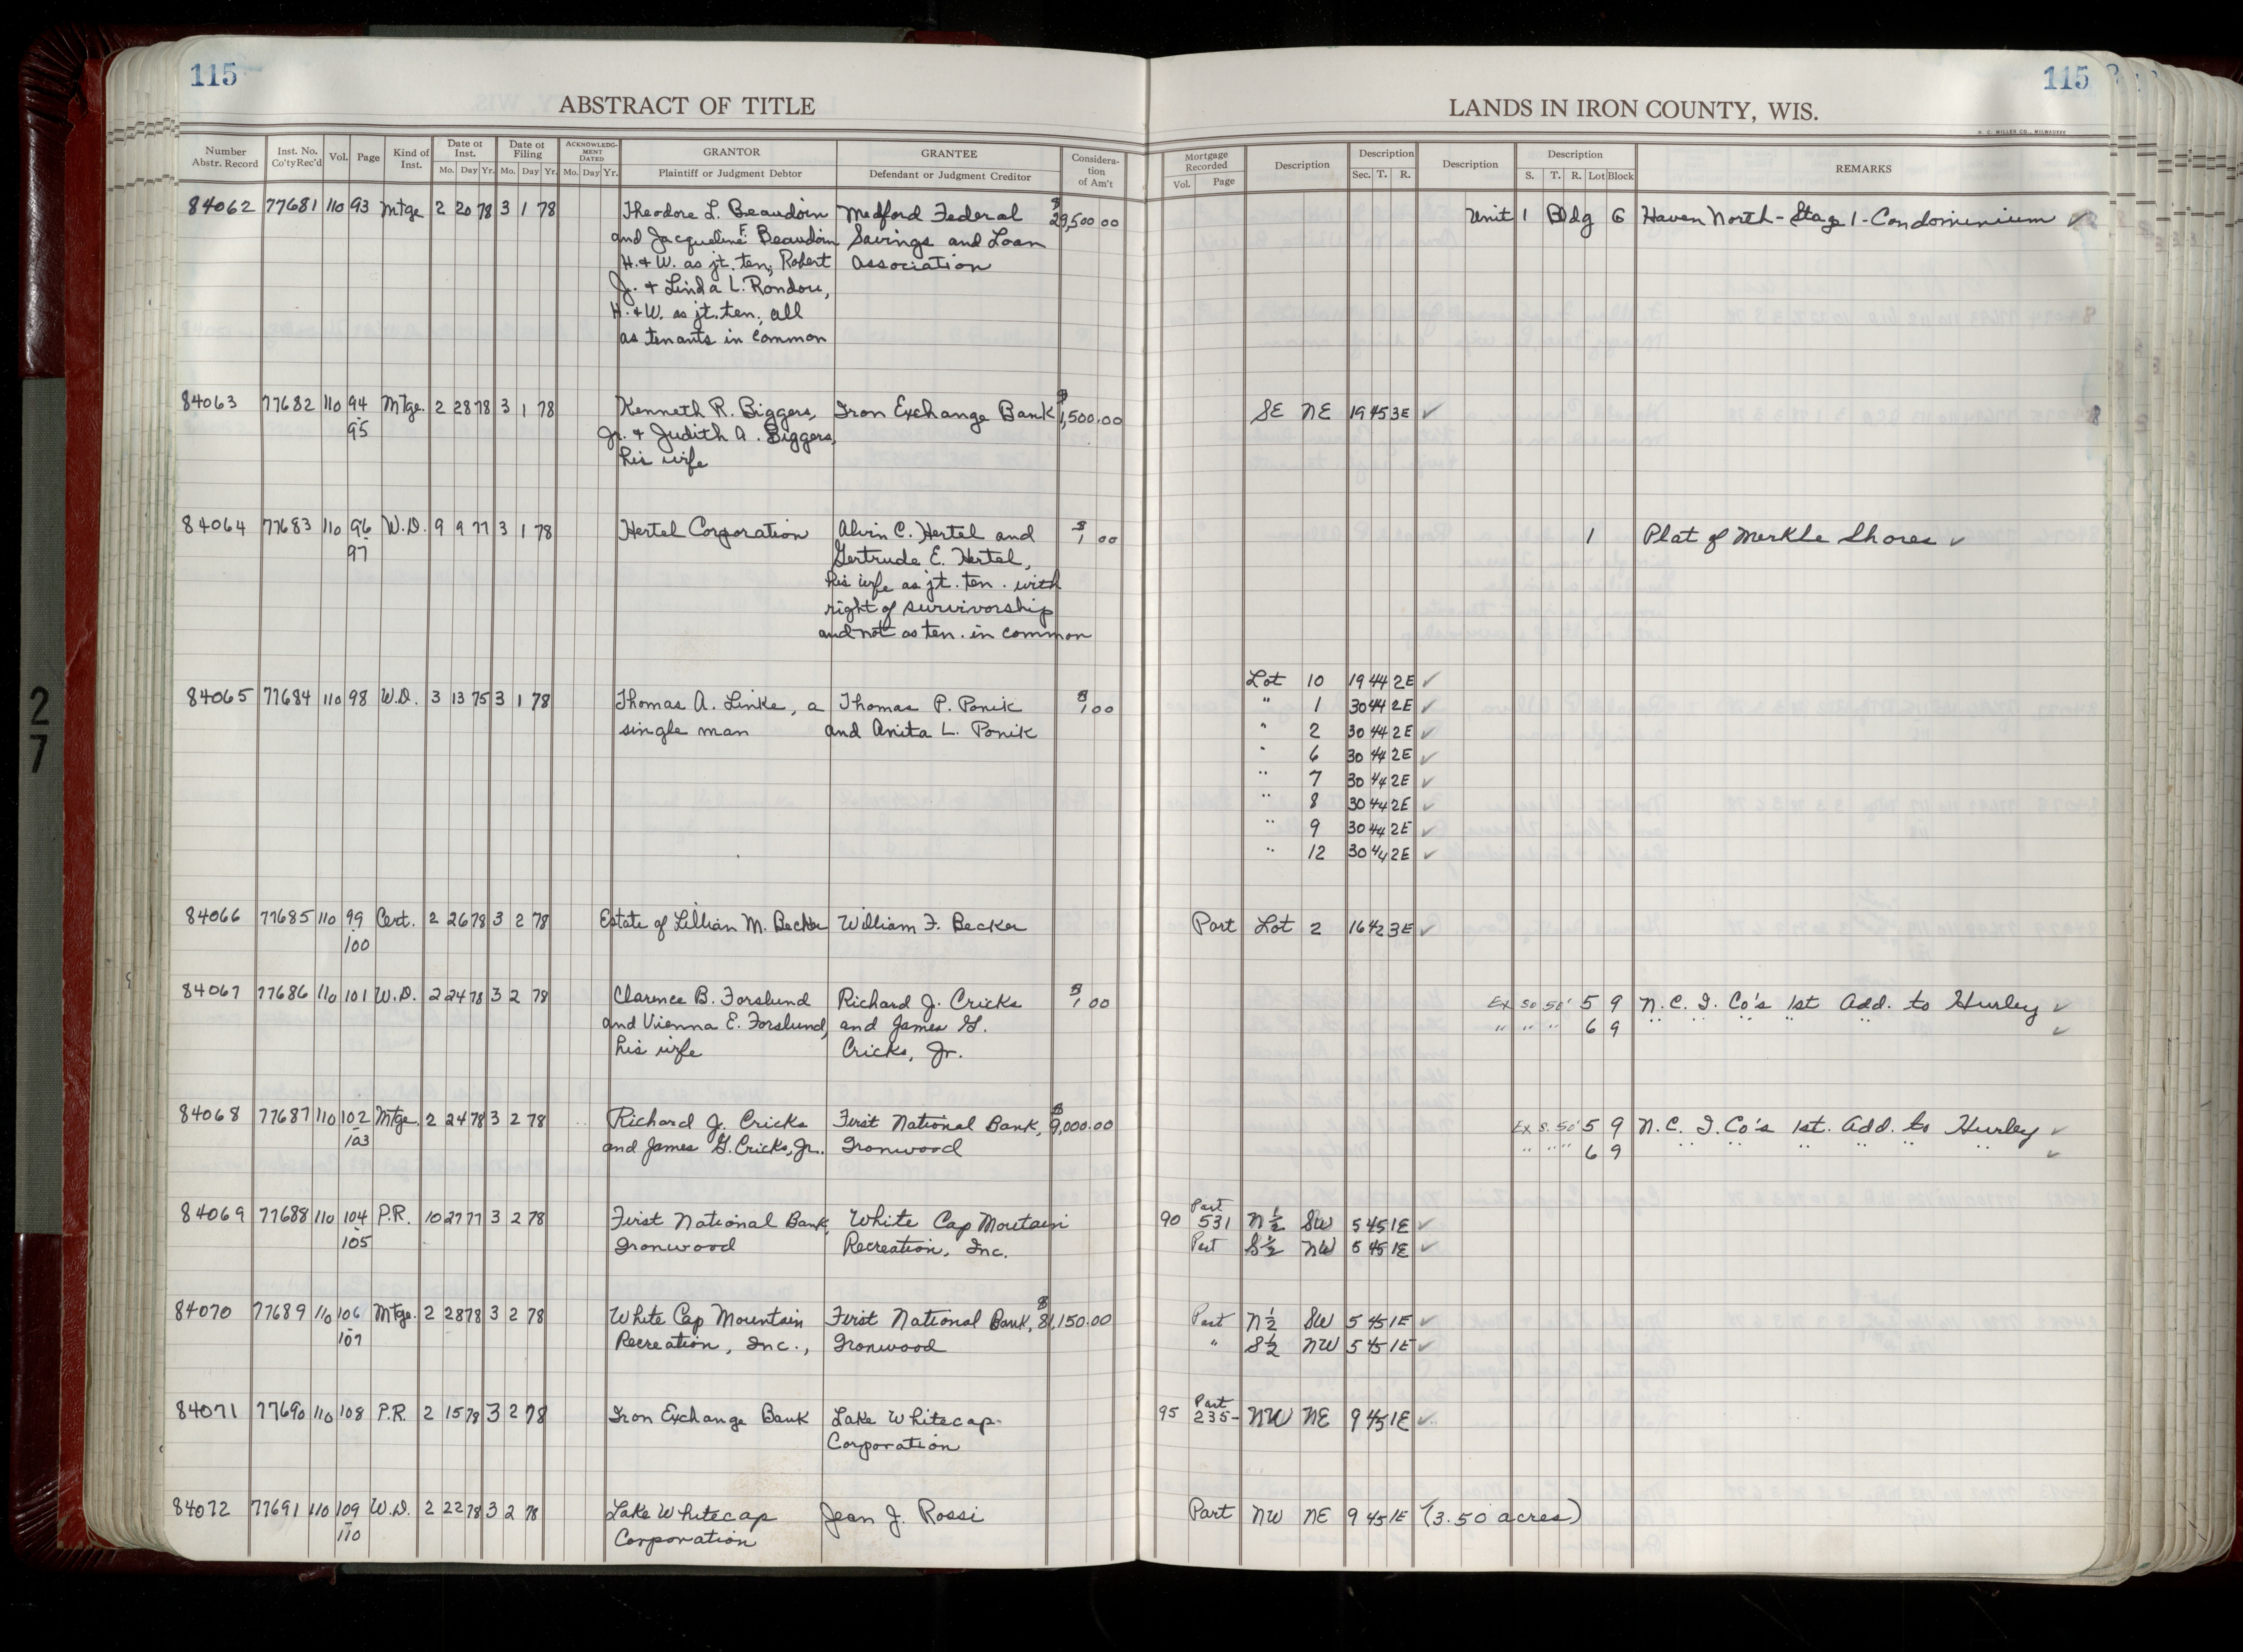 115
115
ABSTRACT OF TITLE
LANDS IN IRON COUNTY, WIS.
H. C. MILLER CO., MILWAUKEE
Number Abstr. Record Inst. No. Co'ty Rec'd Vol. Page Kind of Inst. Date of Inst. Mo. Day Yr. Date of Filing Mo. Day Yr. ACKNOWLEDGMENT DATED Mo. Day Yr. GRANTOR Plaintiff or Judgment Debtor GRANTEE Defendant or Judgment Creditor Consideration of Am't
Mortgage Recorded Vol. Page Description Description Sec. T. R. Description Description S. T. R. Lot Block REMARKS
84062 77681 110 93 Mtge 2 20 78 3 1 78 Theodore L. Beaudoin Medford Federal $29,500.00 Unit 1 Bldg G Haven North - Stage 1 - Condominium ✓
and Jacqueline F. Beaudoin Savings and Loan
H. + W. as jt. ten; Robert Association
J. + Linda L. Rondou,
H. + W. as jt. ten. all
as tenants in common
84063 77682 110 94 Mtge. 2 28 78 3 1 78 Kenneth R. Biggers, Iron Exchange Bank $1,500.00 SE NE 19 45 3E ✓
- 95 Jr. + Judith A. Biggers,
his wife
84064 77683 110 96 W.D. 9 9 77 3 1 78 Hertel Corporation Alvin C. Hertel and $1 00 1 Plat of Merkle Shores ✓
- 97 Gertrude E. Hertel,
his wife as jt. ten. with
right of survivorship
and not as ten. in common
Lot 10 19 44 2E ✓
84065 77684 110 98 W.D. 3 13 75 3 1 78 Thomas A. Linke, a Thomas P. Ponik $1 00 " 1 30 44 2E ✓
single man and Anita L. Ponik " 2 30 44 2E ✓
" 6 30 44 2E ✓
" 7 30 44 2E ✓
" 8 30 44 2E ✓
" 9 30 44 2E ✓
" 12 30 44 2E ✓
84066 77685 110 99 Cert. 2 26 78 3 2 78 Estate of Lillian M. Becker William F. Becker Part Lot 2 16 42 3E ✓
- 100
84067 77686 110 101 W.D. 2 24 78 3 2 78 Clarence B. Forslund Richard J. Cricks $1 00 Ex So 50' 5 9 N.C.I. Co's 1st Add. to Hurley ✓
and Vienna E. Forslund, and James G. " " " 6 9 " " " " " ✓
his wife Cricks, Jr.
84068 77687 110 102 Mtge. 2 24 78 3 2 78 Richard J. Cricks First National Bank, $9,000.00 Ex S. 50' 5 9 N.C. I. Co's 1st. Add. to Hurley ✓
- 103 and James G. Cricks, Jr. Ironwood " " " 6 9 " " " " " " ✓
84069 77688 110 104 P.R. 10 27 77 3 2 78 First National Bank, White Cap Moutain 90 531 Part N½ SW 5 45 1E ✓
- 105 Ironwood Recreation, Inc. Part S½ NW 5 45 1E ✓
84070 77689 110 106 Mtge. 2 28 78 3 2 78 White Cap Mountain First National Bank, $81,150.00 Part N½ SW 5 45 1E ✓
- 107 Recreation, Inc., Ironwood " S½ NW 5 45 1E ✓
84071 77690 110 108 P.R. 2 15 78 3 2 78 Iron Exchange Bank Lake Whitecap 95 235- Part NW NE 9 45 1E ✓
Corporation
84072 77691 110 109 W.D. 2 22 78 3 2 78 Lake Whitecap Jean J. Rossi Part NW NE 9 45 1E (3.50 acres)
- 110 Corporation
27